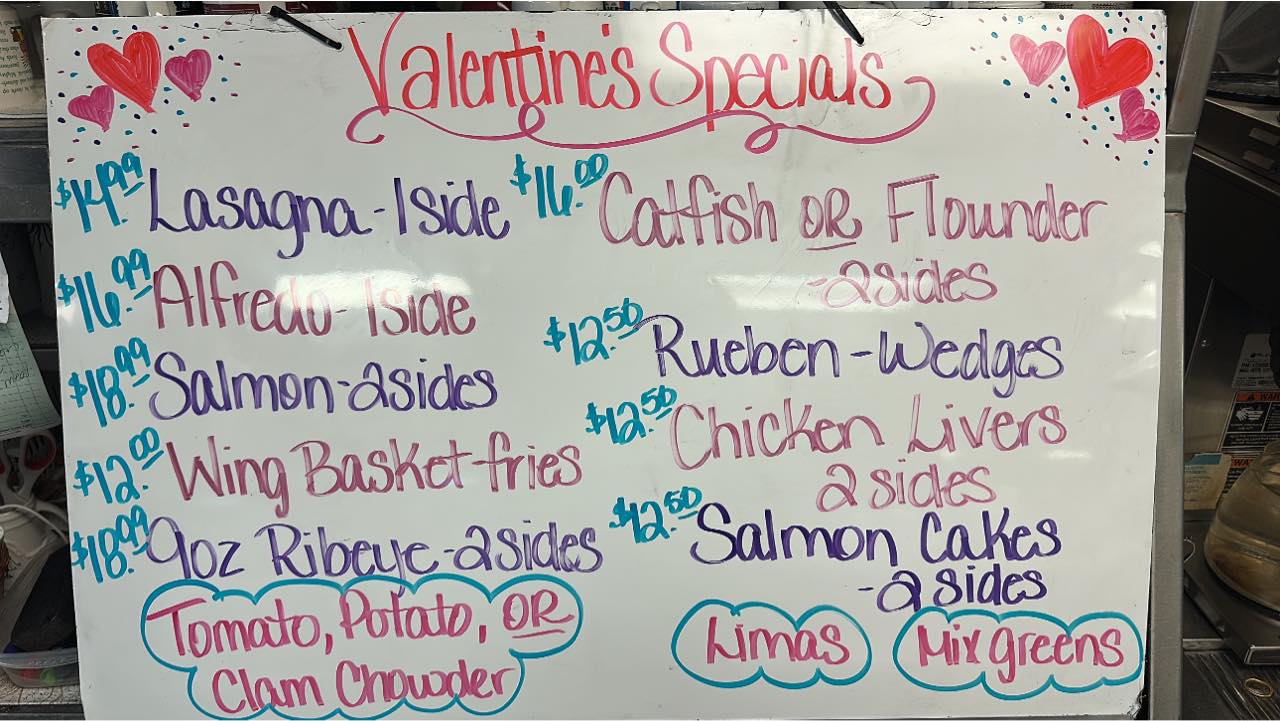 Valentine's Specials
$14.99 Lasagna-1side
$16.99 Alfredo-1side
$18.99 Salmon-2sides
$12.00 Wing Basket-fries
$18.99 9oz Ribeye-2sides
Tomato, Potato, OR
Clam Chowder
$16.00 Catfish OR Flounder
-2sides
$12.50 Rueben-Wedges
$12.50 Chicken Livers
2sides
$12.50 Salmon Cakes
-2sides
Limas
Mix greens